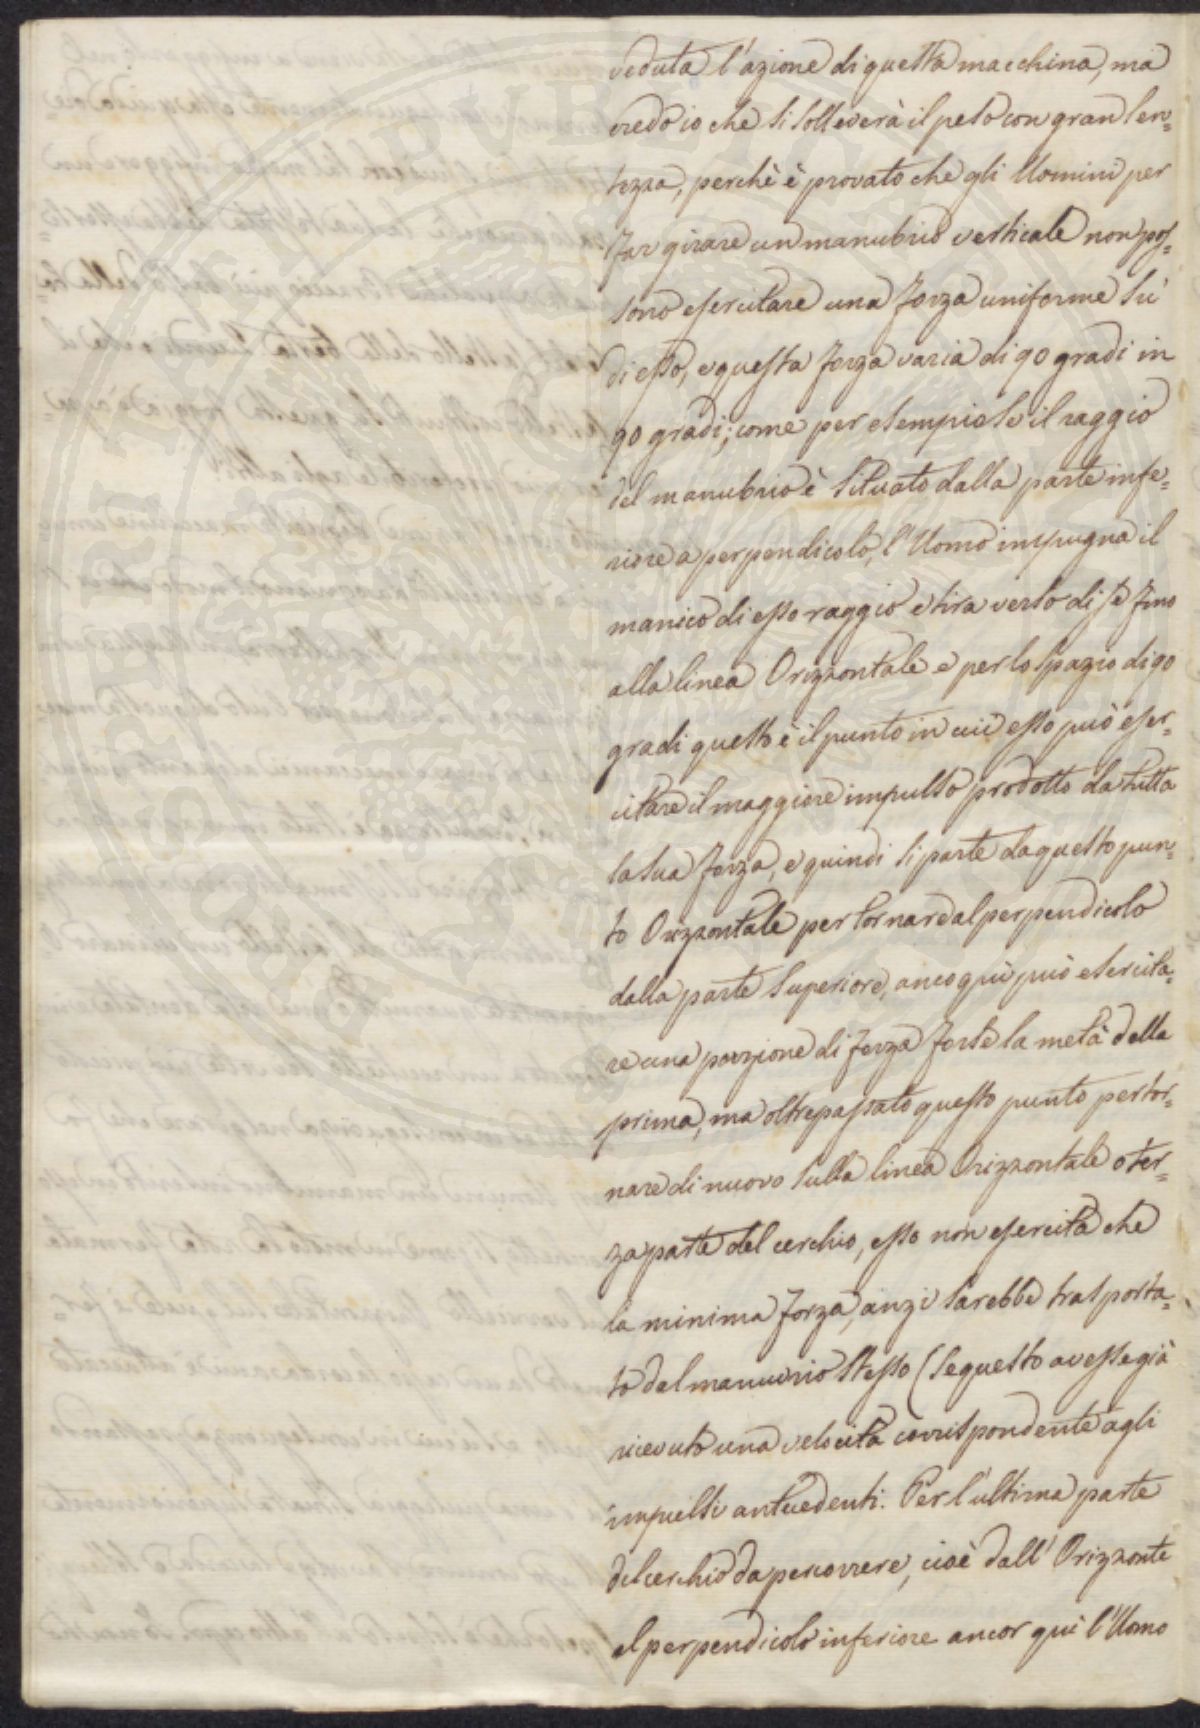 veduta l'azione di questa macchina, ma
credo io che si solleverà il peso con gran len=
tezza, perchè è provato che gli Uomini per
far girare un manubrio verticale non pos=
sono esercitare una forza uniforme su'
di esso, e questa forza varia di 90 gradi in
90 gradi; come per esempio se il raggio
del manubrio è situato dalla parte infe=
riore a perpendicolo, l'Uomo impugna il
manico di esso raggio e tira verso di se fino
alla linea Orizzontale e per lo spazio di 90
gradi questo è il punto in cui esso può eser=
citare il maggiore impulso prodotto da tutta
la sua forza, e quindi si parte da questo pun=
to Orizzontale per tornare al perpendicolo
dalla parte superiore, anco quì può esercita=
re una porzione di forza forse la metà della
prima, ma oltrepassato questo punto per tor=
nare di nuovo sulla linea Orizzontale o ter=
za parte del cerchio, esso non esercita che
la minima forza, anzi sarebbe trasporta=
to dal manubrio stesso (se questo avesse già
ricevuto una velocità corrispondente agli
impulsi antecedenti. Per l'ultima parte
del cerchio da percorrere, cioè dall'Orizzonte
al perpendicolo inferiore ancor quì l'Uomo